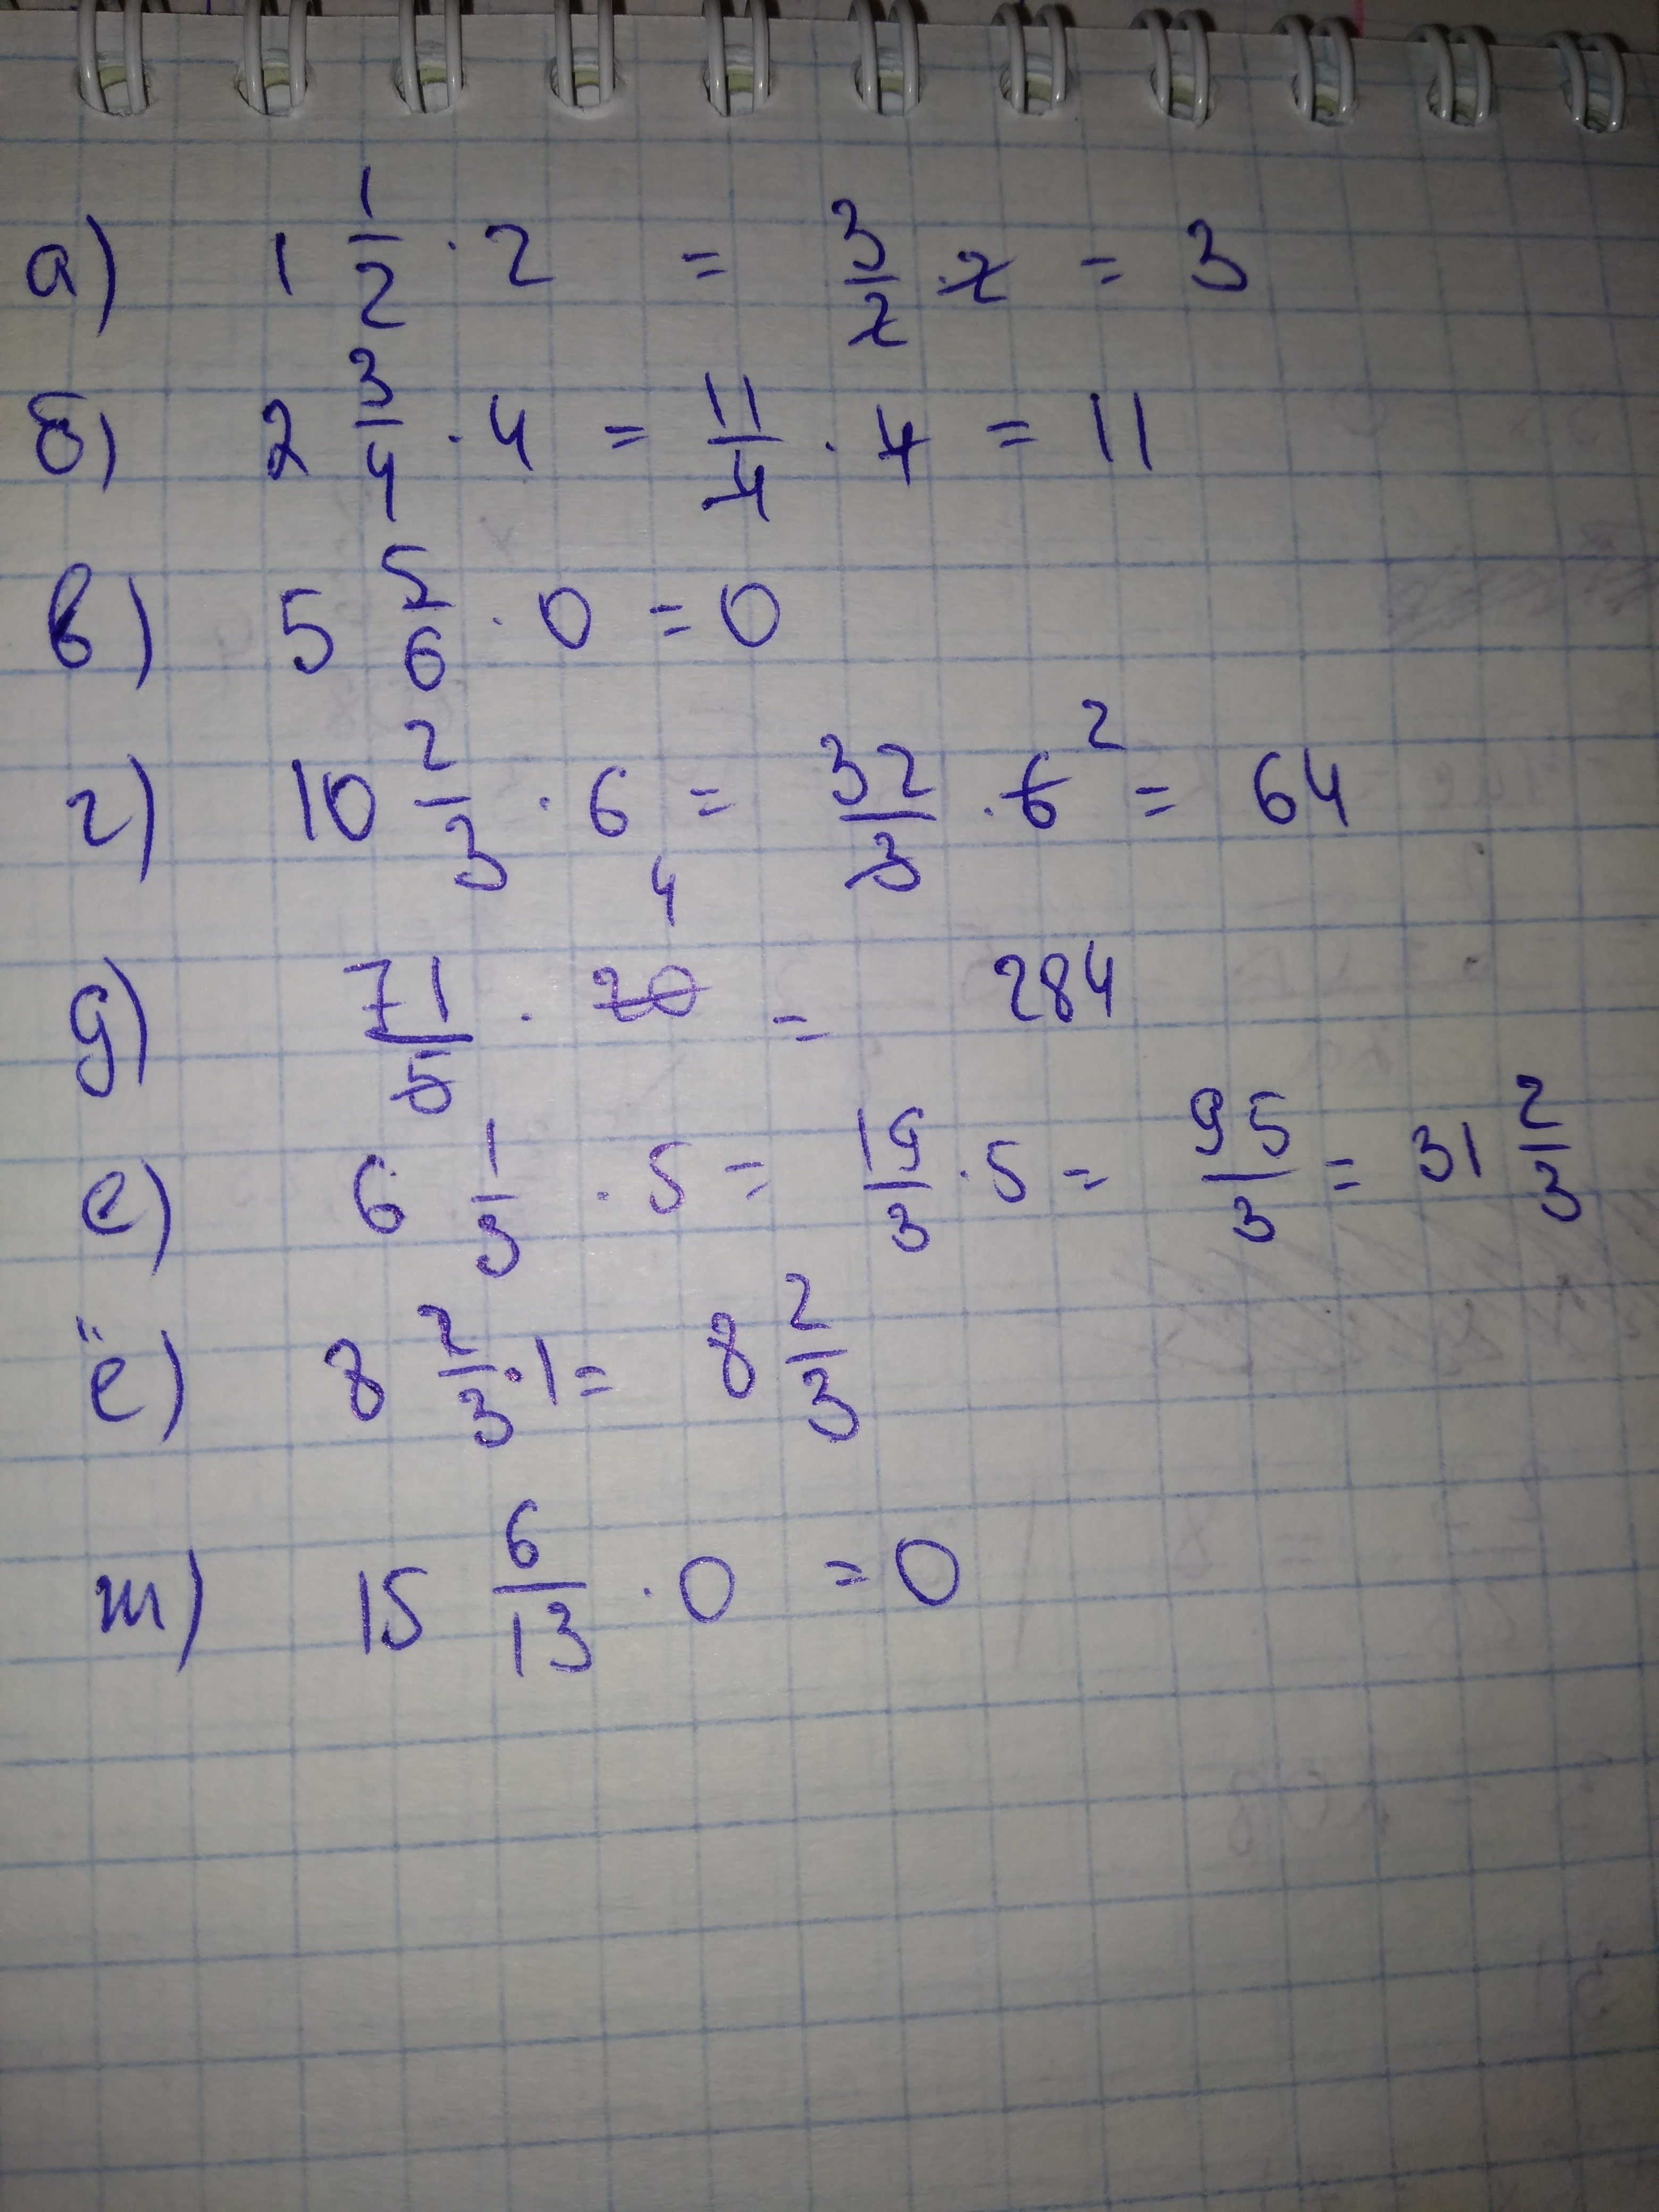 а) 1 1/2 · 2 = 3/2 · 2 = 3
б) 2 3/4 · 4 = 11/4 · 4 = 11
в) 5 5/6 · 0 = 0
г) 10 2/3 · 6 = 32/3 · 6 2 = 64
д) 71/5 · 20 4 = 284
е) 6 1/3 · 5 = 19/3 · 5 = 95/3 = 31 2/3
ё) 8 2/3 · 1 = 8 2/3
ж) 15 6/13 · 0 = 0